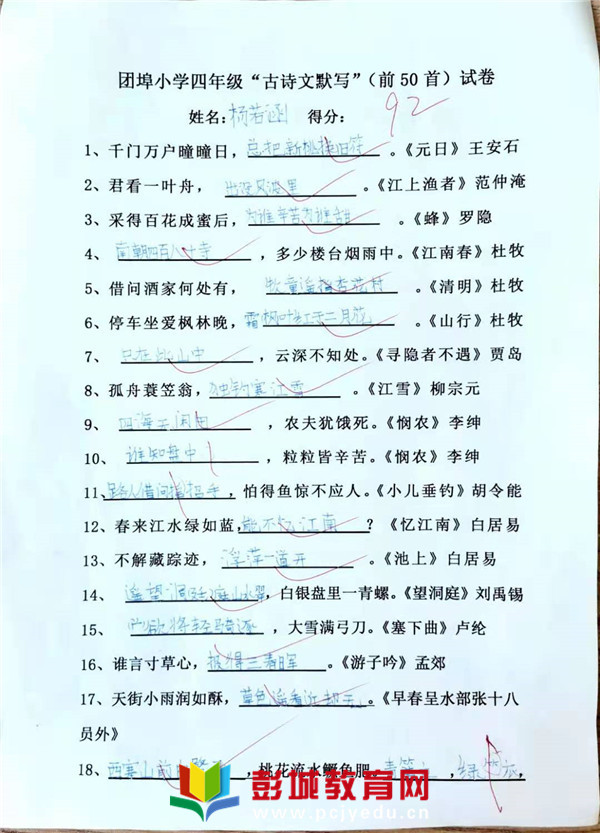 团埠小学四年级“古诗文默写”(前50首)试卷
姓名:杨若涵 得分: 92
1、千门万户曈曈日,总把新桃换旧符。《元日》王安石
2、君看一叶舟,出没风波里。《江上渔者》范仲淹
3、采得百花成蜜后,为谁辛苦为谁甜。《蜂》罗隐
4、南朝四百八十寺,多少楼台烟雨中。《江南春》杜牧
5、借问酒家何处有,牧童遥指杏花村。《清明》杜牧
6、停车坐爱枫林晚,霜枫叶红于二月花。《山行》杜牧
7、只在此山中,云深不知处。《寻隐者不遇》贾岛
8、孤舟蓑笠翁,独钓寒江雪。《江雪》柳宗元
9、四海无闲田,农夫犹饿死。《悯农》李绅
10、谁知盘中,粒粒皆辛苦。《悯农》李绅
11、路人借问遥招手,怕得鱼惊不应人。《小儿垂钓》胡令能
12、春来江水绿如蓝,能不忆江南?《忆江南》白居易
13、不解藏踪迹,浮萍一道开。《池上》白居易
14、遥望洞庭山水翠,白银盘里一青螺。《望洞庭》刘禹锡
15、欲将轻骑逐,大雪满弓刀。《塞下曲》卢纶
16、谁言寸草心,报得三春晖。《游子吟》孟郊
17、天街小雨润如酥,草色遥看近却无。《早春呈水部张十八
员外》
18、西塞山前白鹭飞,桃花流水鳜鱼肥。青箬笠,绿蓑衣,
彭城教育网
www.pcjyedu.com